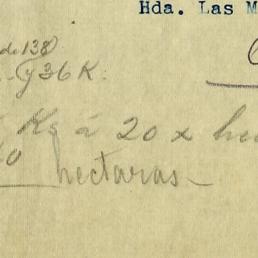 Hda. Las M
de 138)
y 36 K.
Ks á 20 x hec
hectaras